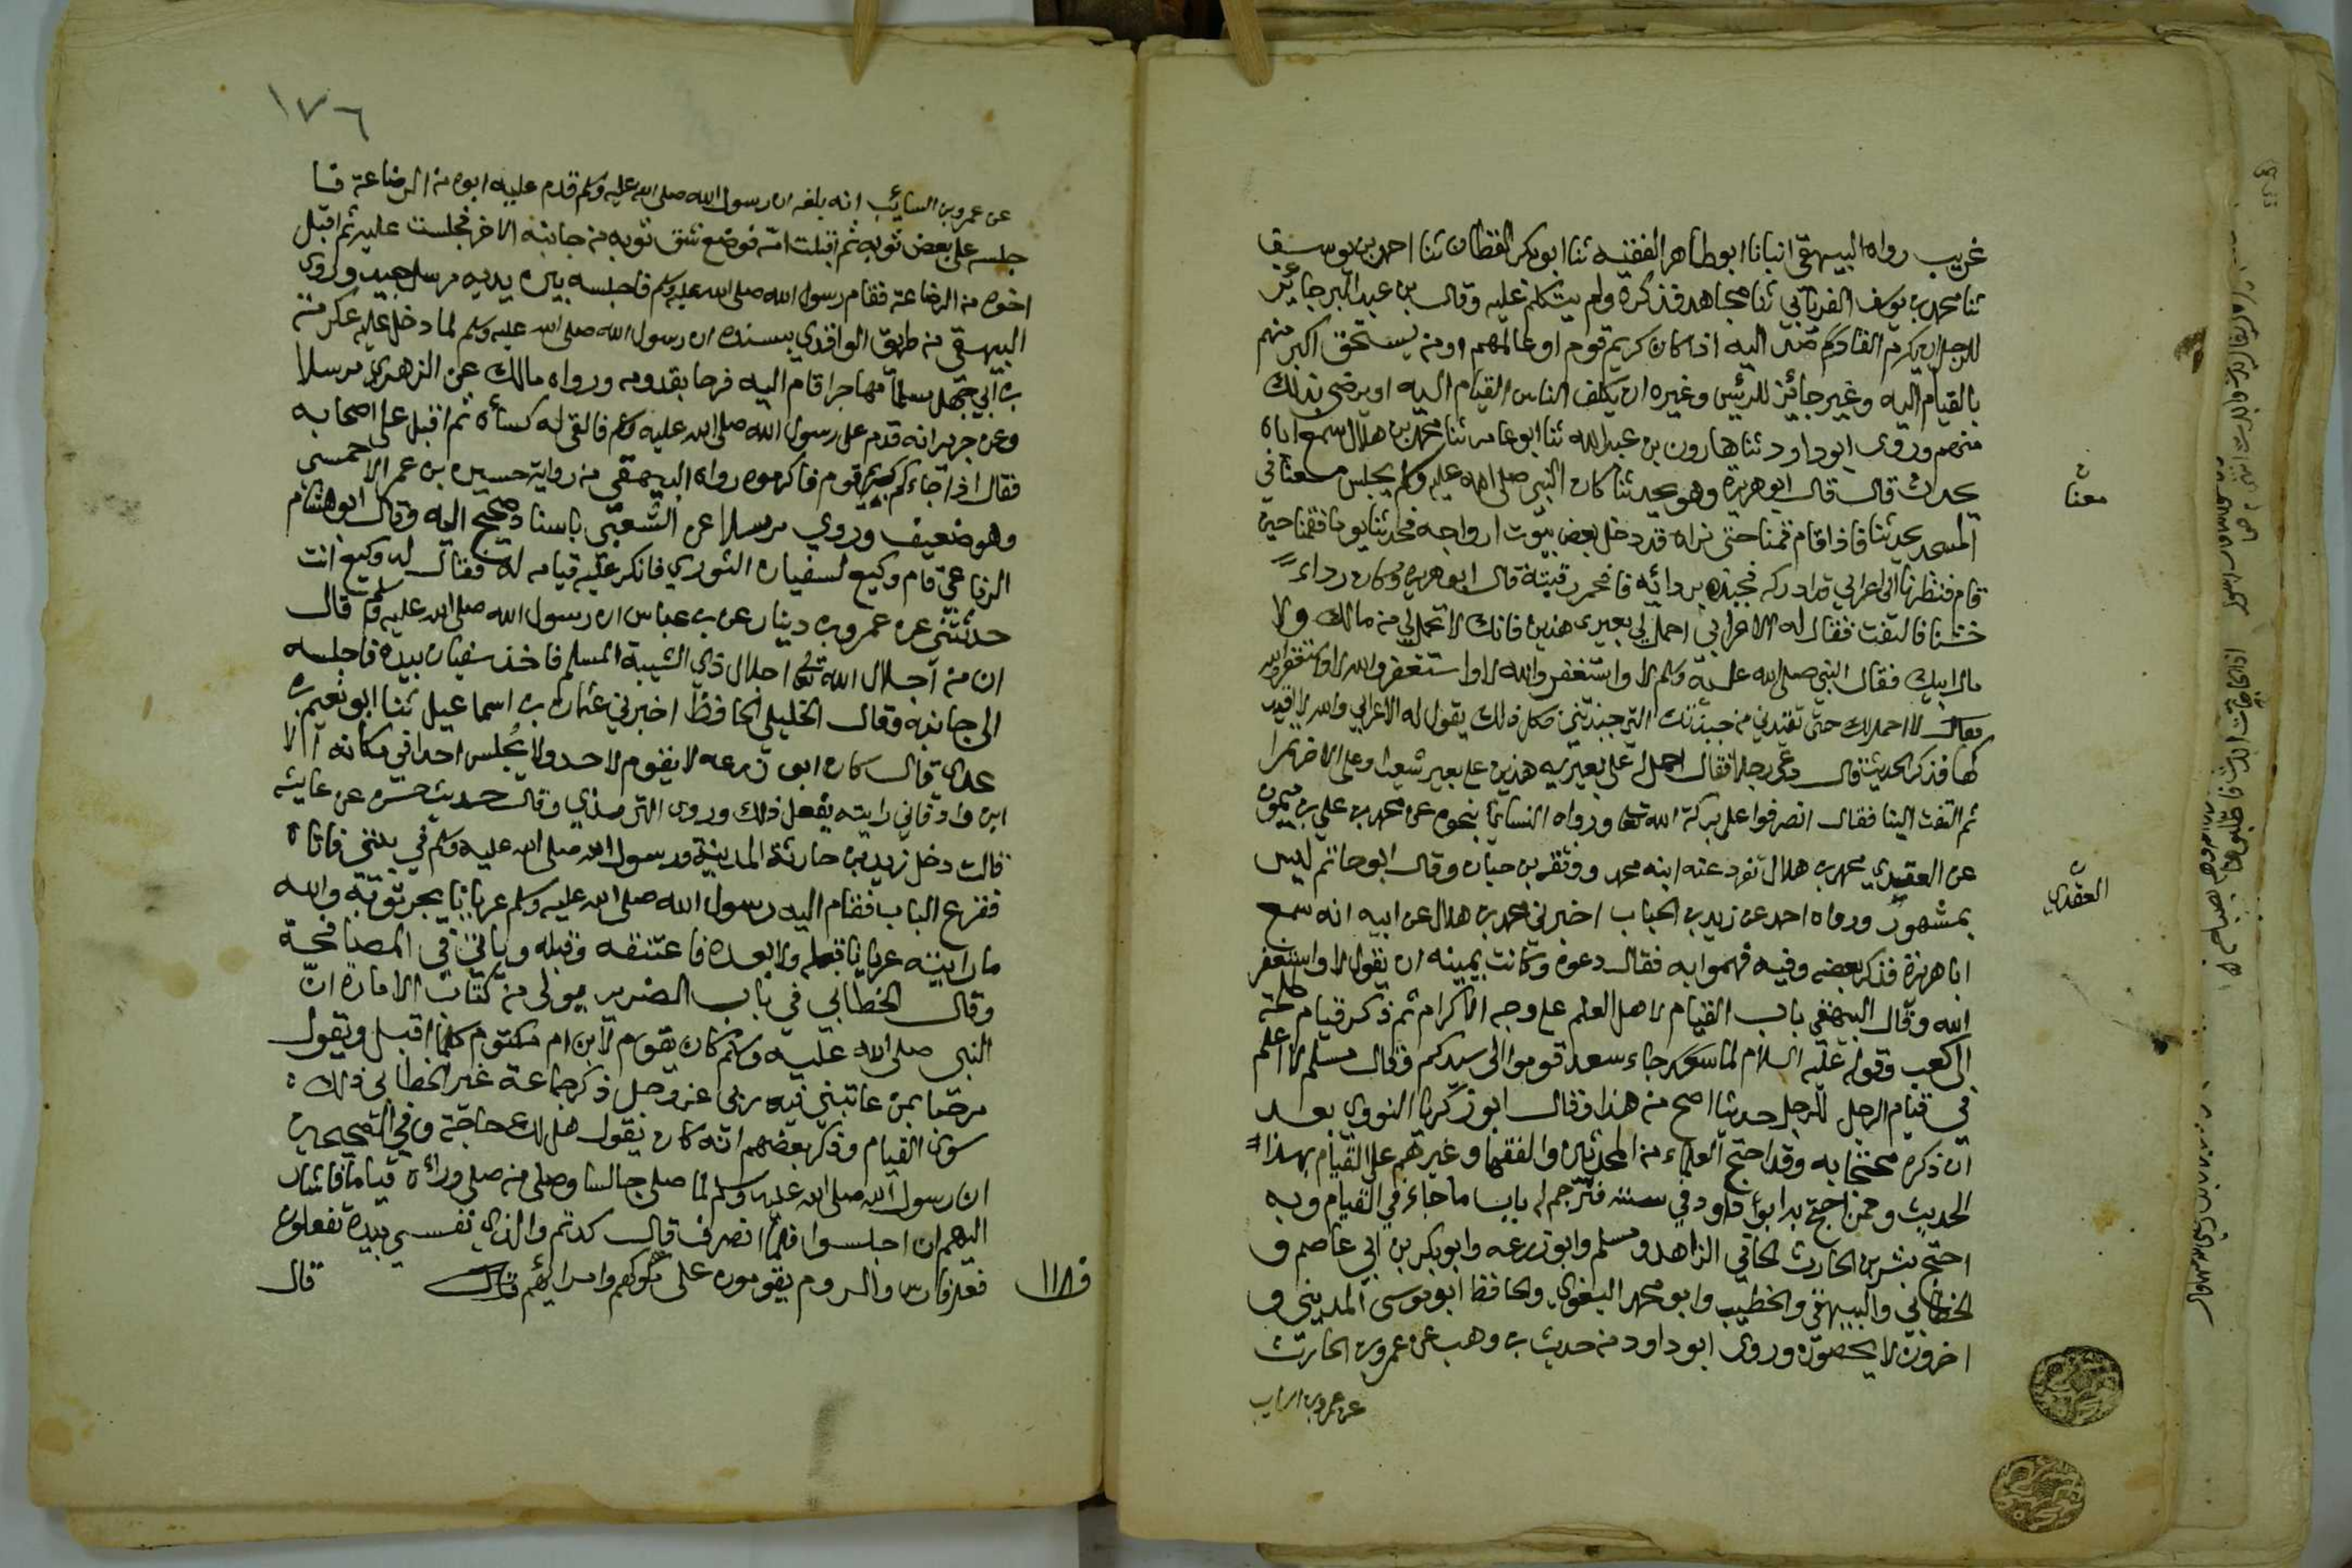 غريب رواه البيهقي انبانا ابو طاهر الفقيه ثنا ابو بكر القطان ثنا احمد بن يوسف
ثنا محمد بن يوسف الفريابي ثنا مجاهد فذكره ولم يتكلم عليه وقال بن عبد البر جائز
للرجل ان يكرم القادم اليه اذا كان كريم قوم او عالمهم او من يستحق اكبر منهم
بالقيام اليه وغير جائز للرئيس وغيره ان يكلف الناس القيام اليه او يرضى بذلك
منهم وروى ابو داود ثنا هارون بن عبد الله ثنا ابو عامر ثنا محمد بن هلال سمع اباه
يحدث قال قال ابو هريرة وهو يحدثنا كان النبي صلى الله عليه وسلم يجلس معنا في
المسجد يحدثنا فاذا قام قمنا حتى نراه قد دخل بعض بيوت ازواجه فحدثنا يوما فقمنا حين
قام فنظرنا الى اعرابي قد ادركه فجبذه بردائه فاحمر رقبته قال ابو هريرة وكان رداء
خشنا فالتفت فقال له الاعرابي احمل لي بعيرى هذين فانك لا تحمل لي من مالك ولا
مال ابيك فقال النبي صلى الله عليه وسلم لا واستغفر الله لا واستغفر الله لا واستغفر الله
فقال لا احمل لك حتى تقيدني من جبذتك التي جبذتني فكل ذلك يقول له الاعرابي والله لا اقيد
كها فذكر الحديث قال دعى رجلا فقال احمل له على بعيريه هذين على بعير شعيرا وعلى الاخر تمرا
ثم التفت الينا فقال انصرفوا على بركة الله تعالى ورواه النسائي بنحوه عن محمد بن علي بن ميمون
عن العقيدي محمد بن هلال تفرد عنه ابنه محمد ووثقه بن حبان وقال ابو حاتم ليس
بمشهور ورواه احمد عن زيد بن الحباب اخبرني محمد بن هلال عن ابيه انه سمع
ابا هريرة فذكر بعضه وفيه فهموا به فقال دعوه وكانت يمينه ان يقول لا واستغفر
الله وقال البيهقي باب القيام لاهل العلم على وجه الاكرام ثم ذكر قيام طلحة
الى كعب وقوله عليه السلام لما جاء سعد قوموا الى سيدكم وقال مسلم لا اعلم
في قيام الرجل للرجل حديثا اصح من هذا وقال ابو زكريا النووي بعد
ان ذكره محتجا به وقد احتج العلماء من المحدثين والفقها وغيرهم على القيام بهذا
الحديث وممن احتج به ابو داود في سننه فترجم له باب ما جاء في القيام وبه
احتج بشر بن الحارث الحافي الزاهد ومسلم وابو زرعه وابو بكر بن ابي عاصم و
الخطابي والبيهقي والخطيب وابو محمد البغوي والحافظ ابو موسى المديني و
اخرون لا يحصون وروى ابو داود من حديث بن وهب عن عمرو بن الحارث
عن عمرو بن السايب
معنا
العقدي
١٧٦
عن عمرو بن السائب انه بلغه ان رسول الله صلى الله عليه وسلم قدم عليه ابوه من الرضاعة فا
جلسه على بعض ثوبه ثم اقبلت امه فوضع شق ثوبه من جانبه الاخر فجلست عليه ثم اقبل
اخوه من الرضاعة فقام رسول الله صلى الله عليه وسلم فاجلسه بين يديه مرسل جيد وروى
البيهقي من طريق الواقدي بسنده ان رسول الله صلى الله عليه وسلم لما دخل عليه عكرمة
بن ابي جهل مسلما مهاجرا قام اليه فرحا بقدومه ورواه مالك عن الزهري مرسلا
وعن جرير انه قدم على رسول الله صلى الله عليه وسلم فالقى له كساه ثم اقبل على اصحابه
فقال اذا جاءكم كريم قوم فاكرموه رواه البيهقي من رواية حسين بن عمر الاحمسي
وهو ضعيف وروي مرسلا عن الشعبي باسناد صحيح اليه وقال ابو هشام
الرفاعي قام وكيع لسفيان الثوري فانكر عليه قيامه له فقال له وكيع انت
حدثتني عن عمرو بن دينار عن بن عباس ان رسول الله صلى الله عليه وسلم قال
ان من اجلال الله تعالى اجلال ذي الشيبة المسلم فاخذ سفيان بيده فاجلسه
الى جانبه وقال الخليلي الحافظ اخبرني عثمان بن اسماعيل ثنا ابو نعيم بن
عدي قال كان ابو زرعه لا يقوم لاحد ولا يجلس احدا في مكانه الا
ابن وارة فاني رايته يفعل ذلك وروى الترمذي وقال حديث حسن عن عايشه
قالت دخل زيد بن حارثة المدينة ورسول الله صلى الله عليه وسلم في بيتي فاتاه
فقرع الباب فقام اليه رسول الله صلى الله عليه وسلم عريانا يجر ثوبه والله
ما رايته عريانا قبله ولا بعده فاعتنقه وقبله وياتي في المصافحة
وقال الخطابي في باب الضرير يولى من كتاب الامارة ان
النبي صلى الله عليه وسلم كان يقوم لابن ام مكتوم كلما اقبل ويقول
مرحبا بمن عاتبني فيه ربي عز وجل ذكر جماعة غير الخطابي ذلك
سوى القيام وذكر بعضهم انه كان يقول هل لك حاجة وفي الصحيحين
ان رسول الله صلى الله عليه وسلم لما صلى جالسا وصلى من صلى وراه قياما فاشار
اليهم ان اجلسوا فلما انصرف قال كدتم والذي نفسي بيده تفعلون
فعل فارس والروم يقومون على ملوكهم وامرائهم قال
قال